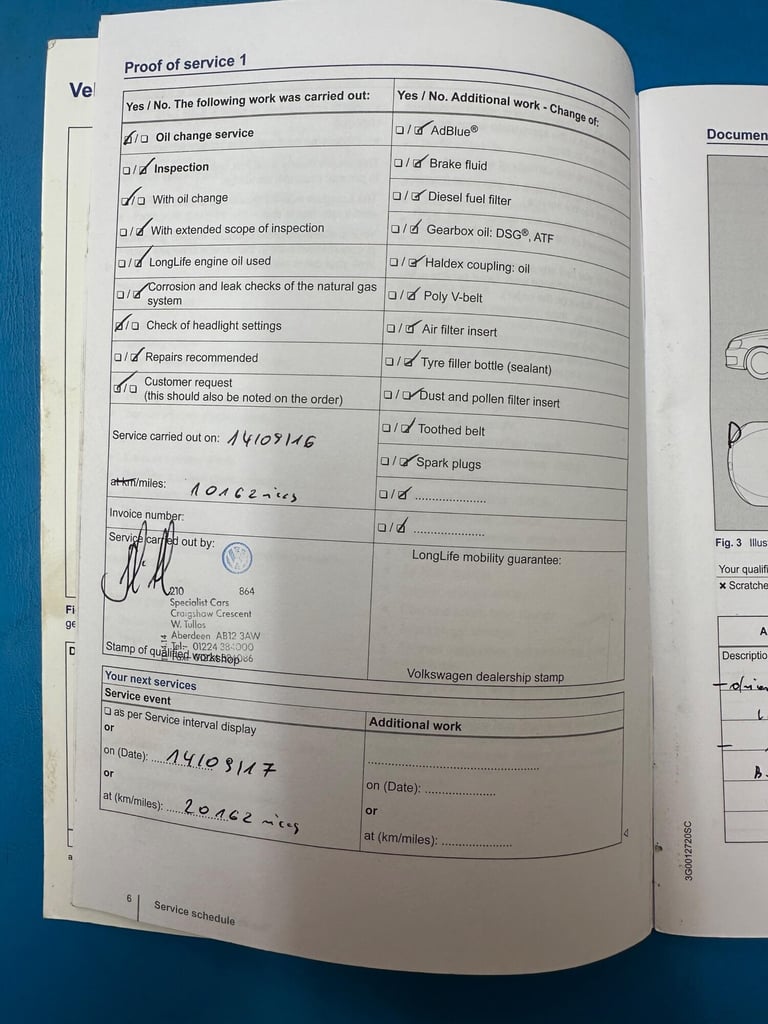 Proof of service 1
Yes / No. The following work was carried out:
☑/☐ Oil change service
☐/☑ Inspection
☑/☐ With oil change
☐/☑ With extended scope of inspection
☐/☑ LongLife engine oil used
☐/☑ Corrosion and leak checks of the natural gas
system
☑/☐ Check of headlight settings
☐/☑ Repairs recommended
☑/☐ Customer request
(this should also be noted on the order)
Service carried out on: 14/09/16
at km/miles: 10162 miles
Invoice number:
Service carried out by:
210 864
Specialist Cars
Craigshaw Crescent
W. Tullos
Aberdeen AB12 3AW
Tel:- 01224 384000
Stamp of qualified workshop
Yes / No. Additional work - Change of:
☐/☑ AdBlue®
☐/☑ Brake fluid
☐/☑ Diesel fuel filter
☐/☑ Gearbox oil: DSG®, ATF
☐/☑ Haldex coupling: oil
☐/☑ Poly V-belt
☐/☑ Air filter insert
☐/☑ Tyre filler bottle (sealant)
☐/☑ Dust and pollen filter insert
☐/☑ Toothed belt
☐/☑ Spark plugs
☐/☑ ....................
☐/☑ ....................
LongLife mobility guarantee:
Volkswagen dealership stamp
Your next services
Service event
☐ as per Service interval display
or
on (Date): 14/09/17
or
at (km/miles): 20162 miles
Additional work
on (Date): ....................
or
at (km/miles): ....................
6
Service schedule
Vel
Fi
ge
D
a
Documen
Fig. 3 Illus
Your qualifi
✖ Scratche
A
Descriptio
B.
3G0012720SC